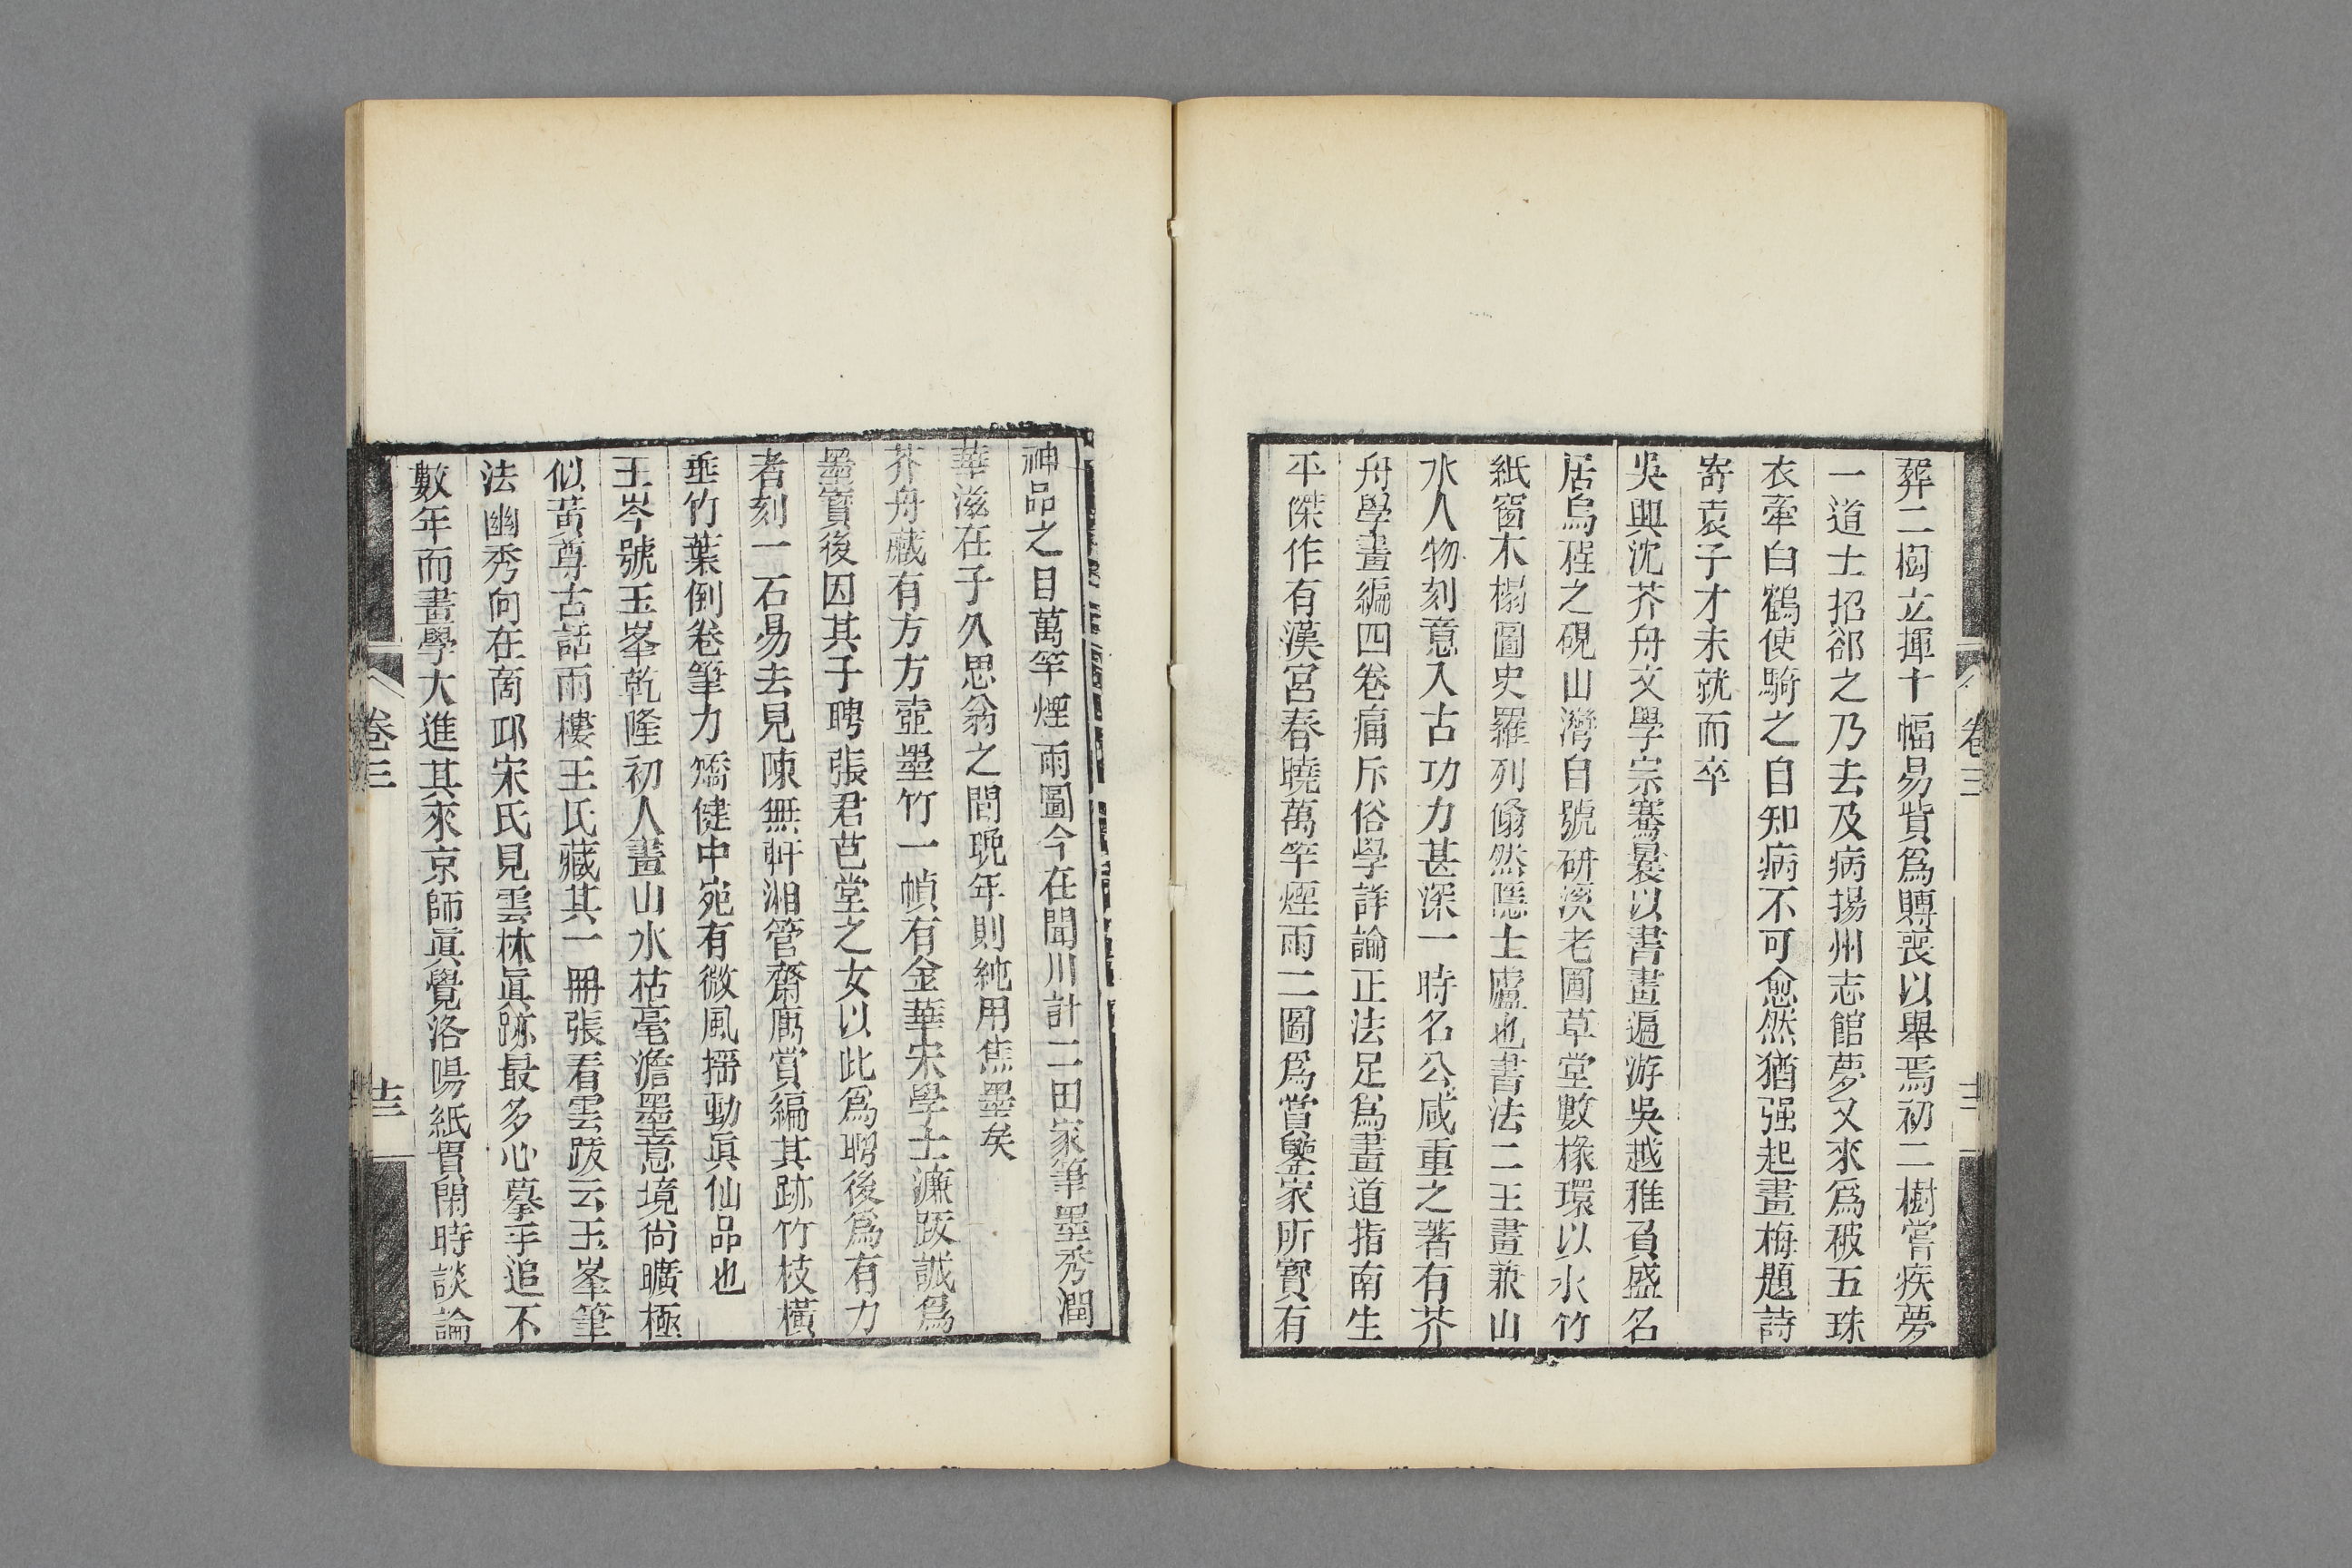 葬二樹立揮十幅易貲爲賻喪以舉焉初二樹嘗疾夢
一道士招郤之乃去及病揚州志館夢又來爲被五珠
衣牽白鶴使騎之自知病不可愈然猶强起畫梅題詩
寄袁子才未就而卒
吳興沈芥舟文學宗騫曩以書畫遍游吳越雅負盛名
居烏程之硯山灣自號研溪老圃草堂數椽環以水竹
紙窗木榻圖史羅列翛然隱士廬也書法二王畫兼山
水人物刻意入古功力甚深一時名公咸重之著有芥
舟學畫編四卷痛斥俗學詳論正法足爲畫道指南生
平傑作有漢宮春曉萬竿煙雨二圖爲賞鑒家所寶有
卷三
神品之目萬竿煙雨圖今在聞川計二田家筆墨秀潤
華滋在子久思翁之間晚年則純用焦墨矣
芥舟藏有方方壺墨竹一幀有金華宋學士濂跋誠爲
墨寶後因其子聘張君芑堂之女以此爲聘後爲有力
者刻一石易去見陳無軒湘管齋寓賞編其跡竹枝橫
垂竹葉倒卷筆力矯健中宛有微風搖動眞仙品也
王岑號玉峯乾隆初人畫山水枯毫澹墨意境尙曠極
似黃尊古話雨樓王氏藏其一冊張看雲跋云玉峯筆
法幽秀向在商邱宋氏見雲林眞跡最多心摹手追不
數年而畫學大進其來京師眞覺洛陽紙貴閑時談論
卷三